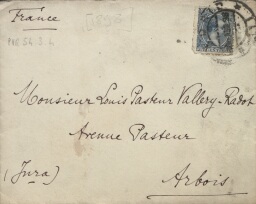 France
Monsieur Louis Pasteur Vallery-Radot
Avenue Pasteur
(Jura)
Arbois